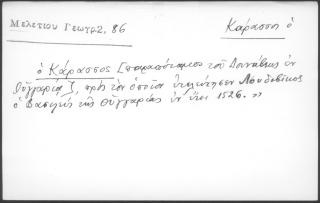 Μελετίου Γεωγρ2, 86
Κάρασσος ὁ
ὁ Κάρασσος [παραπόταμος τοῦ Δουνάβεως ἐν
Οὑγγαρίᾳ], πρὸς τὸν ὁποῖον ἐτελεύτησεν Λουδοβῖκος
ὁ βασιλεὺς τῆς Οὑγγαρίας ἐν ἔτει 1526. »